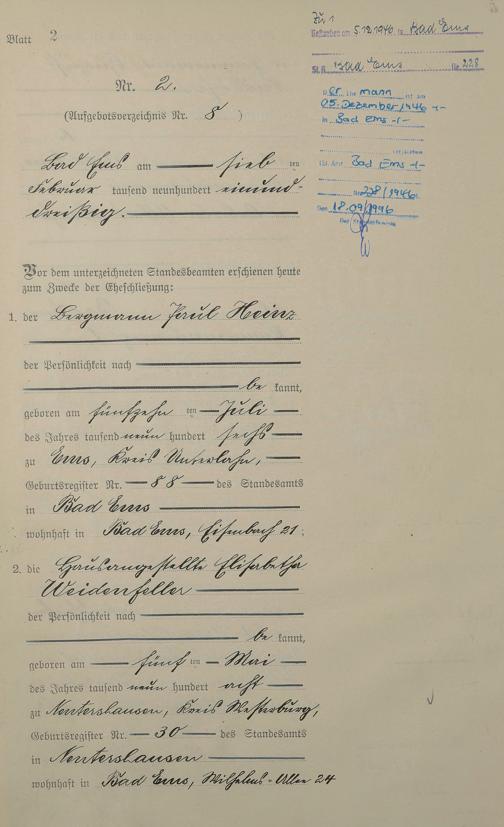 Blatt 2
Zu 1
Gestorben am 5.12.1946 in Bad Ems
St. A. Bad Ems Nr. 228
Der Ehemann ist am
05. Dezember 1946 -/-
in Bad Ems -/-
Bad Ems -/-
228/1946
Den 18.09/1996
Nr. 2.
(Aufgebotsverzeichnis Nr. 8 )
Bad Ems am sieb ten
Februar tausend neunhundert einund-
dreißig.
Vor dem unterzeichneten Standesbeamten erschienen heute
zum Zwecke der Eheschließung:
1. der Bergmann Paul Heinz
der Persönlichkeit nach
be kannt,
geboren am fünfzehn ten Juli
des Jahres tausend neun hundert sechs
zu Ems, Kreis Unterlahn,
Geburtsregister Nr. 88 des Standesamts
in Bad Ems
wohnhaft in Bad Ems, Eisenbach 21.
2. die Hausangestellte Elisabetha
Weidenfeller
der Persönlichkeit nach
be kannt,
geboren am fünf ten Mai
des Jahres tausend neun hundert acht
zu Nentershausen, Kreis Westerburg,
Geburtsregister Nr. 30 des Standesamts
in Nentershausen
wohnhaft in Bad Ems, Wilhelms-Allee 24